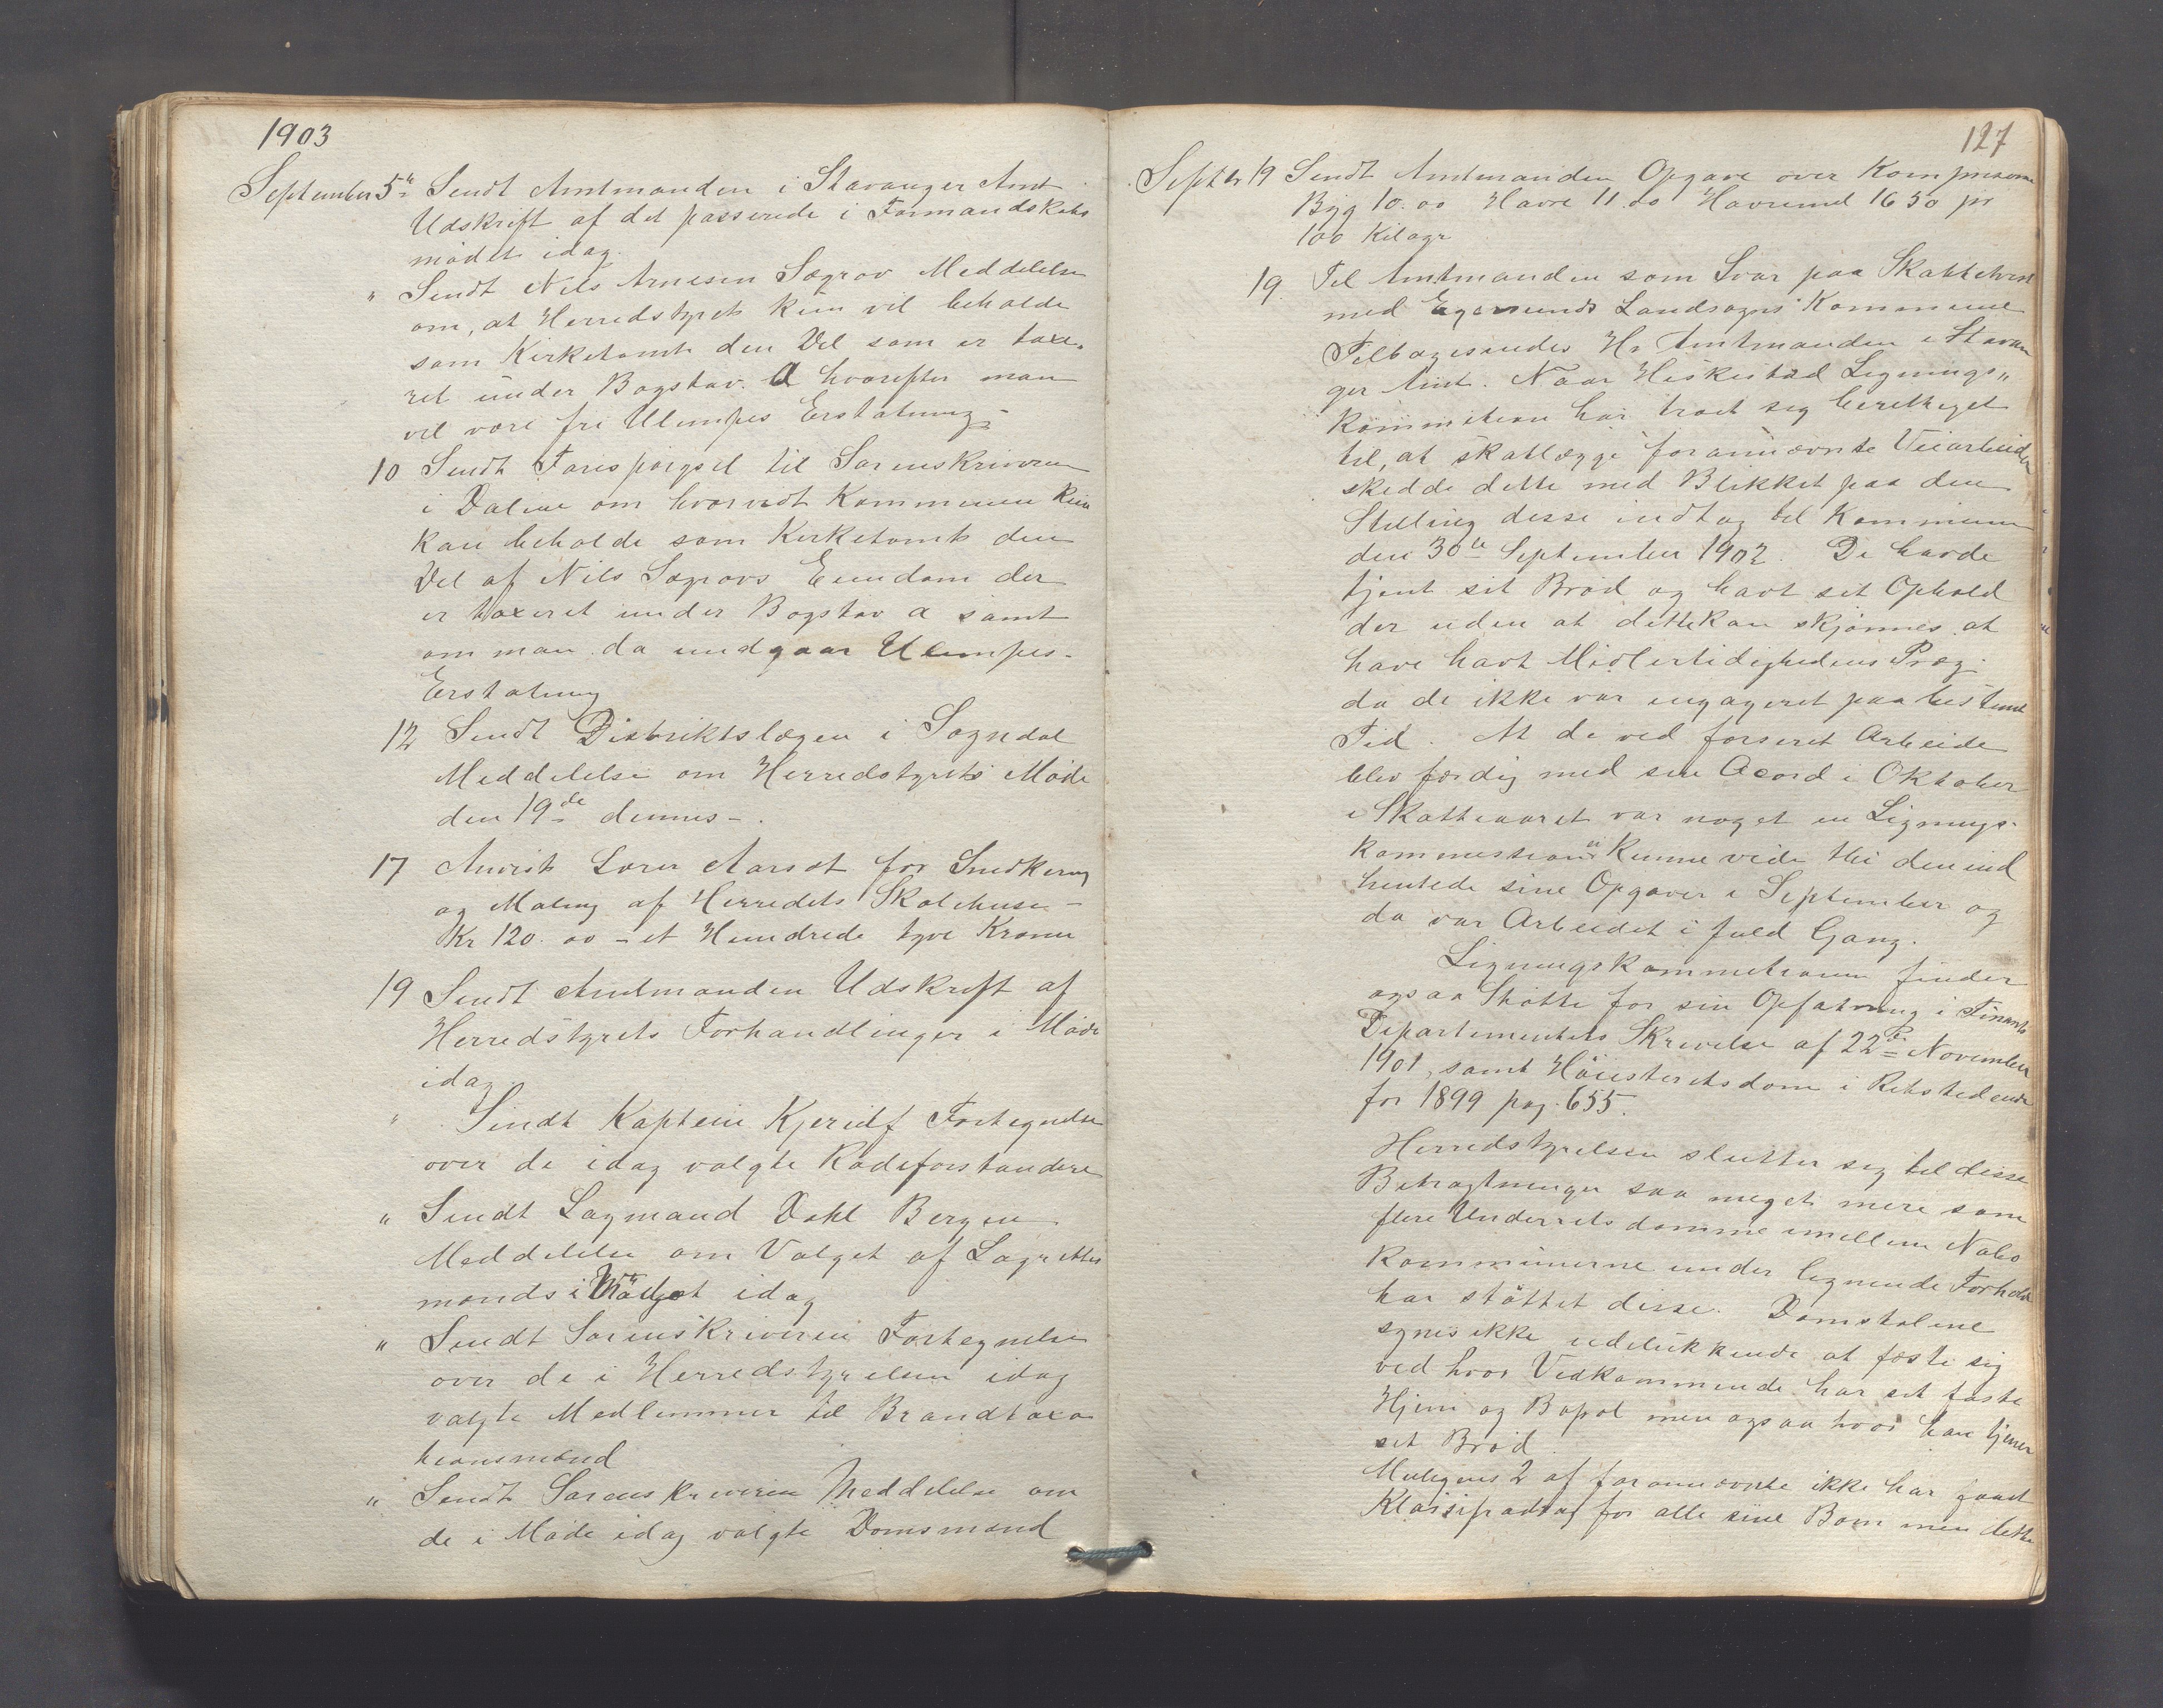 1903
September 5te Sendt Amtmanden i Stavanger Amt
Udskrift af det passerede i Formandskabs
mödet idag.
" Sendt Nils Arnesen Sægrov Meddelelse
om, at Herredstyret kun vil beholde
som Kirketomt den Del som er taxe-
ret under Bogstav. a hvorefter man
vil være fri Ulempes Erstatning -
10 Sendt Forespörgsel til Sorenskriveren
i Dalene om hvorvidt Kommunen kun
kan beholde som Kirketomt den
Del af Nils Sægrovs Eiendom der
er taxeret under Bogstav a samt
om man da undgaar Ulempes-
Erstatning
12 Sendt Distriktslægen i Sogndal
Meddelelse om Herredstyrets Möde
den 19de dennes -.
17 Anvist Lærer Aarsot for Snedkering
og Maling af Herredets Skolehuse -
Kr 120. 00 - et Hundrede tyve Kroner
19 Sendt Amtmanden Udskrift af
Herredstyrets Forhandlinger i Möde
idag.
" Sendt Kaptein Kjerulf Fortegnelse
over de idag valgte Rodeforstandere
" Sendt Lagmand Dahl Bergen
Meddelelse om Valget af Lagrettes
mænds i idag
" Sendt Sorenskriveren Fortegnelse
over de i Herredstyrelsen idag
valgte Medlemmer til Brandtaxa
tionsmænd
" Sendt Sorenskriveren Meddelelse om
de i Möde idag valgte Domsmænd
127
Septbr 19 Sendt Amtmanden Opgave over Kornpriserne
Byg 10.00 Havre 11.00 Havremel 16 50 pr
100 Kilogr
19. Til Amtmanden som Svar paa Skattetvist
med Egersunds Landsogns Kommune
Tilbagesendes Hr Amtmanden i Stavan
ger Amt. Naar Heskestad Lignings"
kommition har troet sig berettiget
til, at skatlægge forannævnte Veiarbeider
skedde dette med Blikket paa den
Stilling disse indtog til Kommunen
den 30te September 1902. De havde
tjent sit Bröd og havt sit Ophold
der uden at dette kan skjönnes at
have havt Midlertidighedens Præg.
da de ikke var engageret paa bestemt
Tid. At de ved forseret Arbeide
blev færdig med sin Acord i Oktober
i Skatteaaret var noget en Lignings-
kommission ei kunne vide thi den ind
hentede sine Opgaver i September og
da var Arbeidet i fuld Gang.
Ligningskommitionen finder
ogsaa Stötte for sin Opfatning i Finants
Departementets Skrivelse af 22de November
1901, samt Höiesteretsdom i Retstidende
for 1899 pag. 655.
Herredstyrelsen slutter sig til disse
Betragtninger saa meget mere som
flere Underretsdomme imellem Nabo
Kommunerne under lignende Forhold
har stöttet disse. Domstolene
synes ikke udelukkende at fæste sig
ved hvor Vedkommende har sit faste
Hjem og Bopæl men ogsaa hvor han tjener
sit Bröd.
Muligens 2 af forannævnte ikke har faaet
Klassefradrag for alle sine Børn men dette